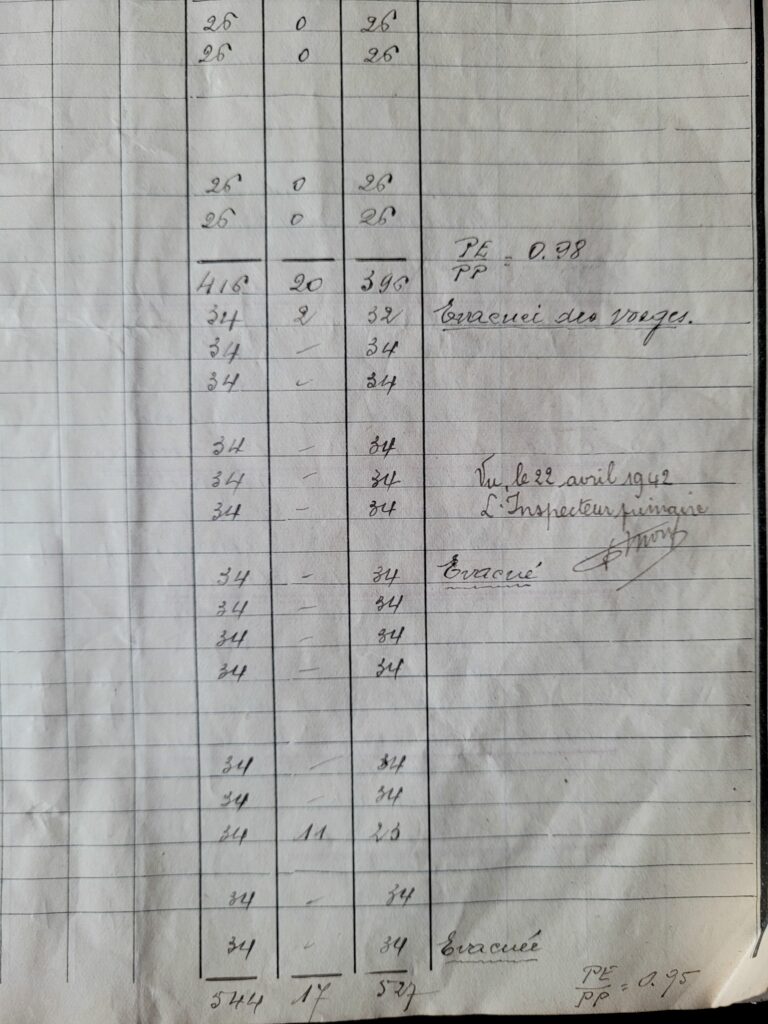 26 0 26
26 0 26
26 0 26
26 0 26
PE/PP = 0.98
416 20 396
34 2 32 Evacuéi des Vosges.
34 – 34
34 – 34
34 – 34
34 – 34 Vu, le 22 avril 1942
34 – 34 L'Inspecteur primaire
34 – 34 Evacué
34 – 34
34 – 34
34 – 34
34 – 34
34 – 34
34 11 23
34 – 34
34 – 34 Evacuée
544 17 527 PE/PP = 0.95